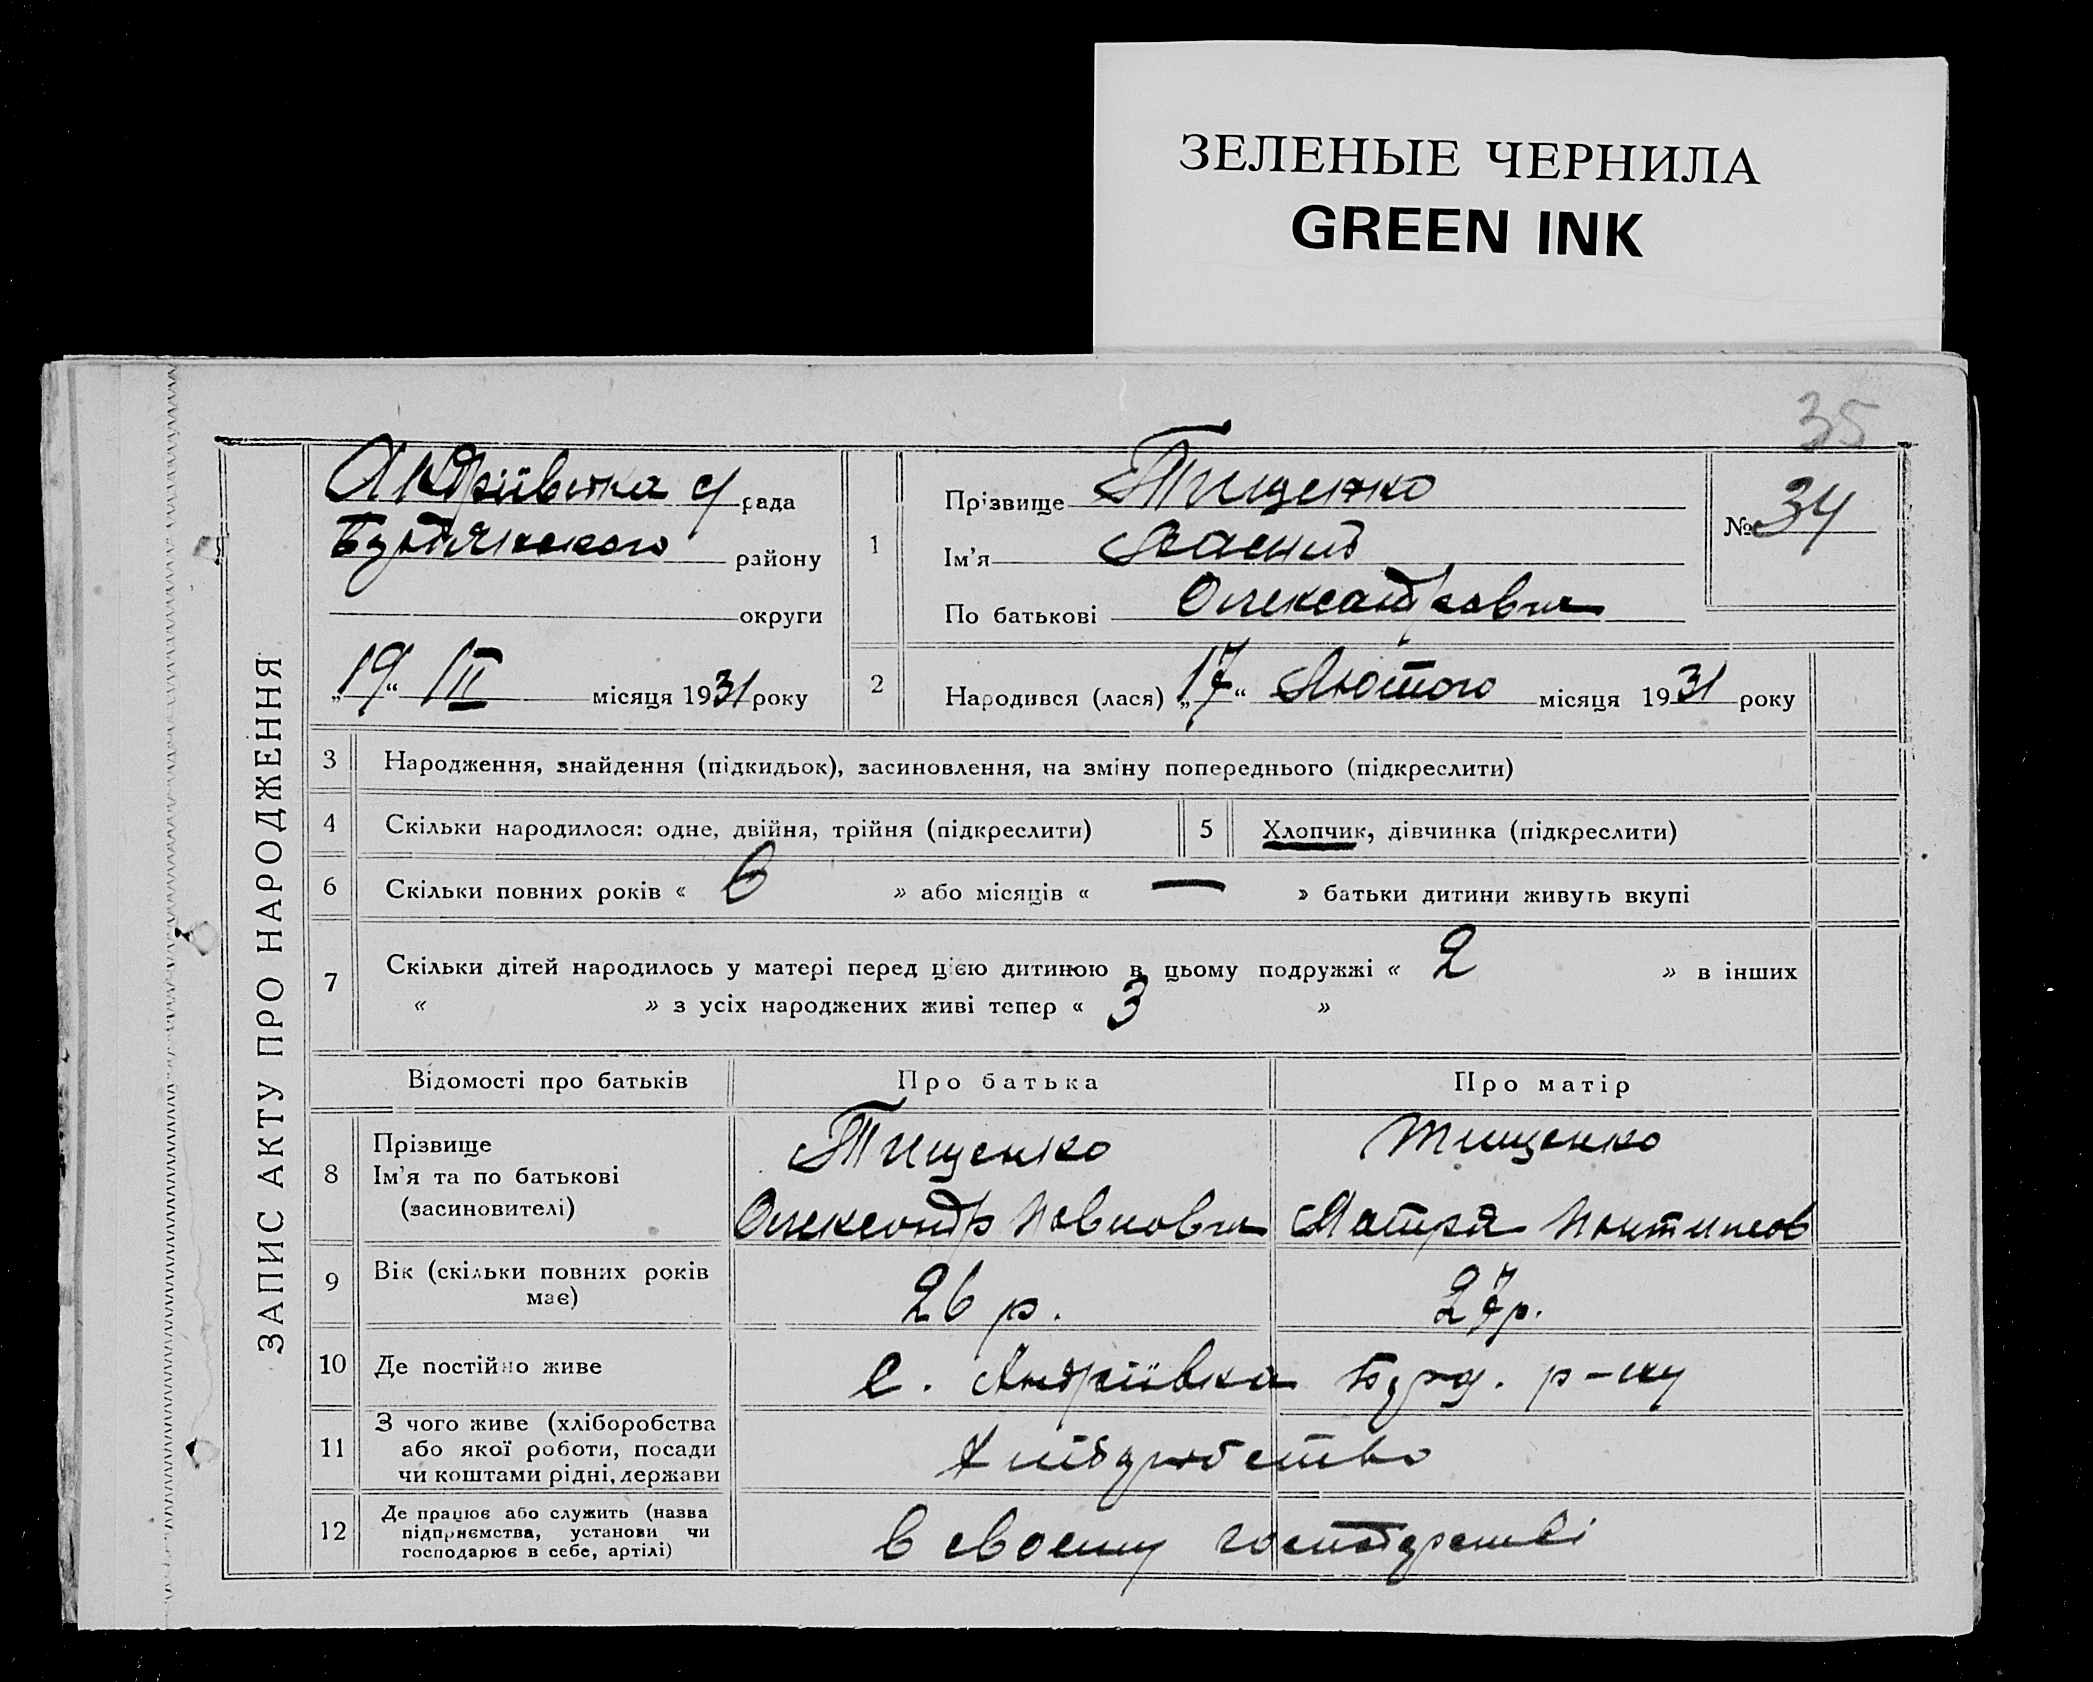 ЗЕЛЕНЫЕ ЧЕРНИЛА
GREEN INK
35
ЗАПИС АКТУ ПРО НАРОДЖЕННЯ
Андріївська с/рада
району
округи
„19“ III місяця 1931 року
1
Прізвище Тищенко
Ім'я
По батькові Олександрович
№ 34
2
Народився (лася) „17“ Лютого місяця 1931 року
3 Народження, знайдення (підкидьок), засиновлення, на зміну попереднього (підкреслити)
4 Скільки народилося: одне, двійня, трійня (підкреслити) 5 Хлопчик, дівчинка (підкреслити)
6 Скільки повних років « 6 » або місяців « — » батьки дитини живуть вкупі
7 Скільки дітей народилось у матері перед цією дитиною в цьому подружжі « 2 » в інших
« » з усіх народжених живі тепер « 3 »
Відомості про батьків Про батька Про матір
8 Прізвище Тищенко Тищенко
Ім'я та по батькові
(засиновителі) Олександр
9 Вік (скільки повних років має) 26 р. 27 р.
10 Де постійно живе с. Андріївка р-ну
11 З чого живе (хліборобства
або якої роботи, посади
чи коштами рідні, держави
Хліборобство
12 Де працює або служить (назва
підприємства, установи чи
господарює в себе, артілі)
в своєму